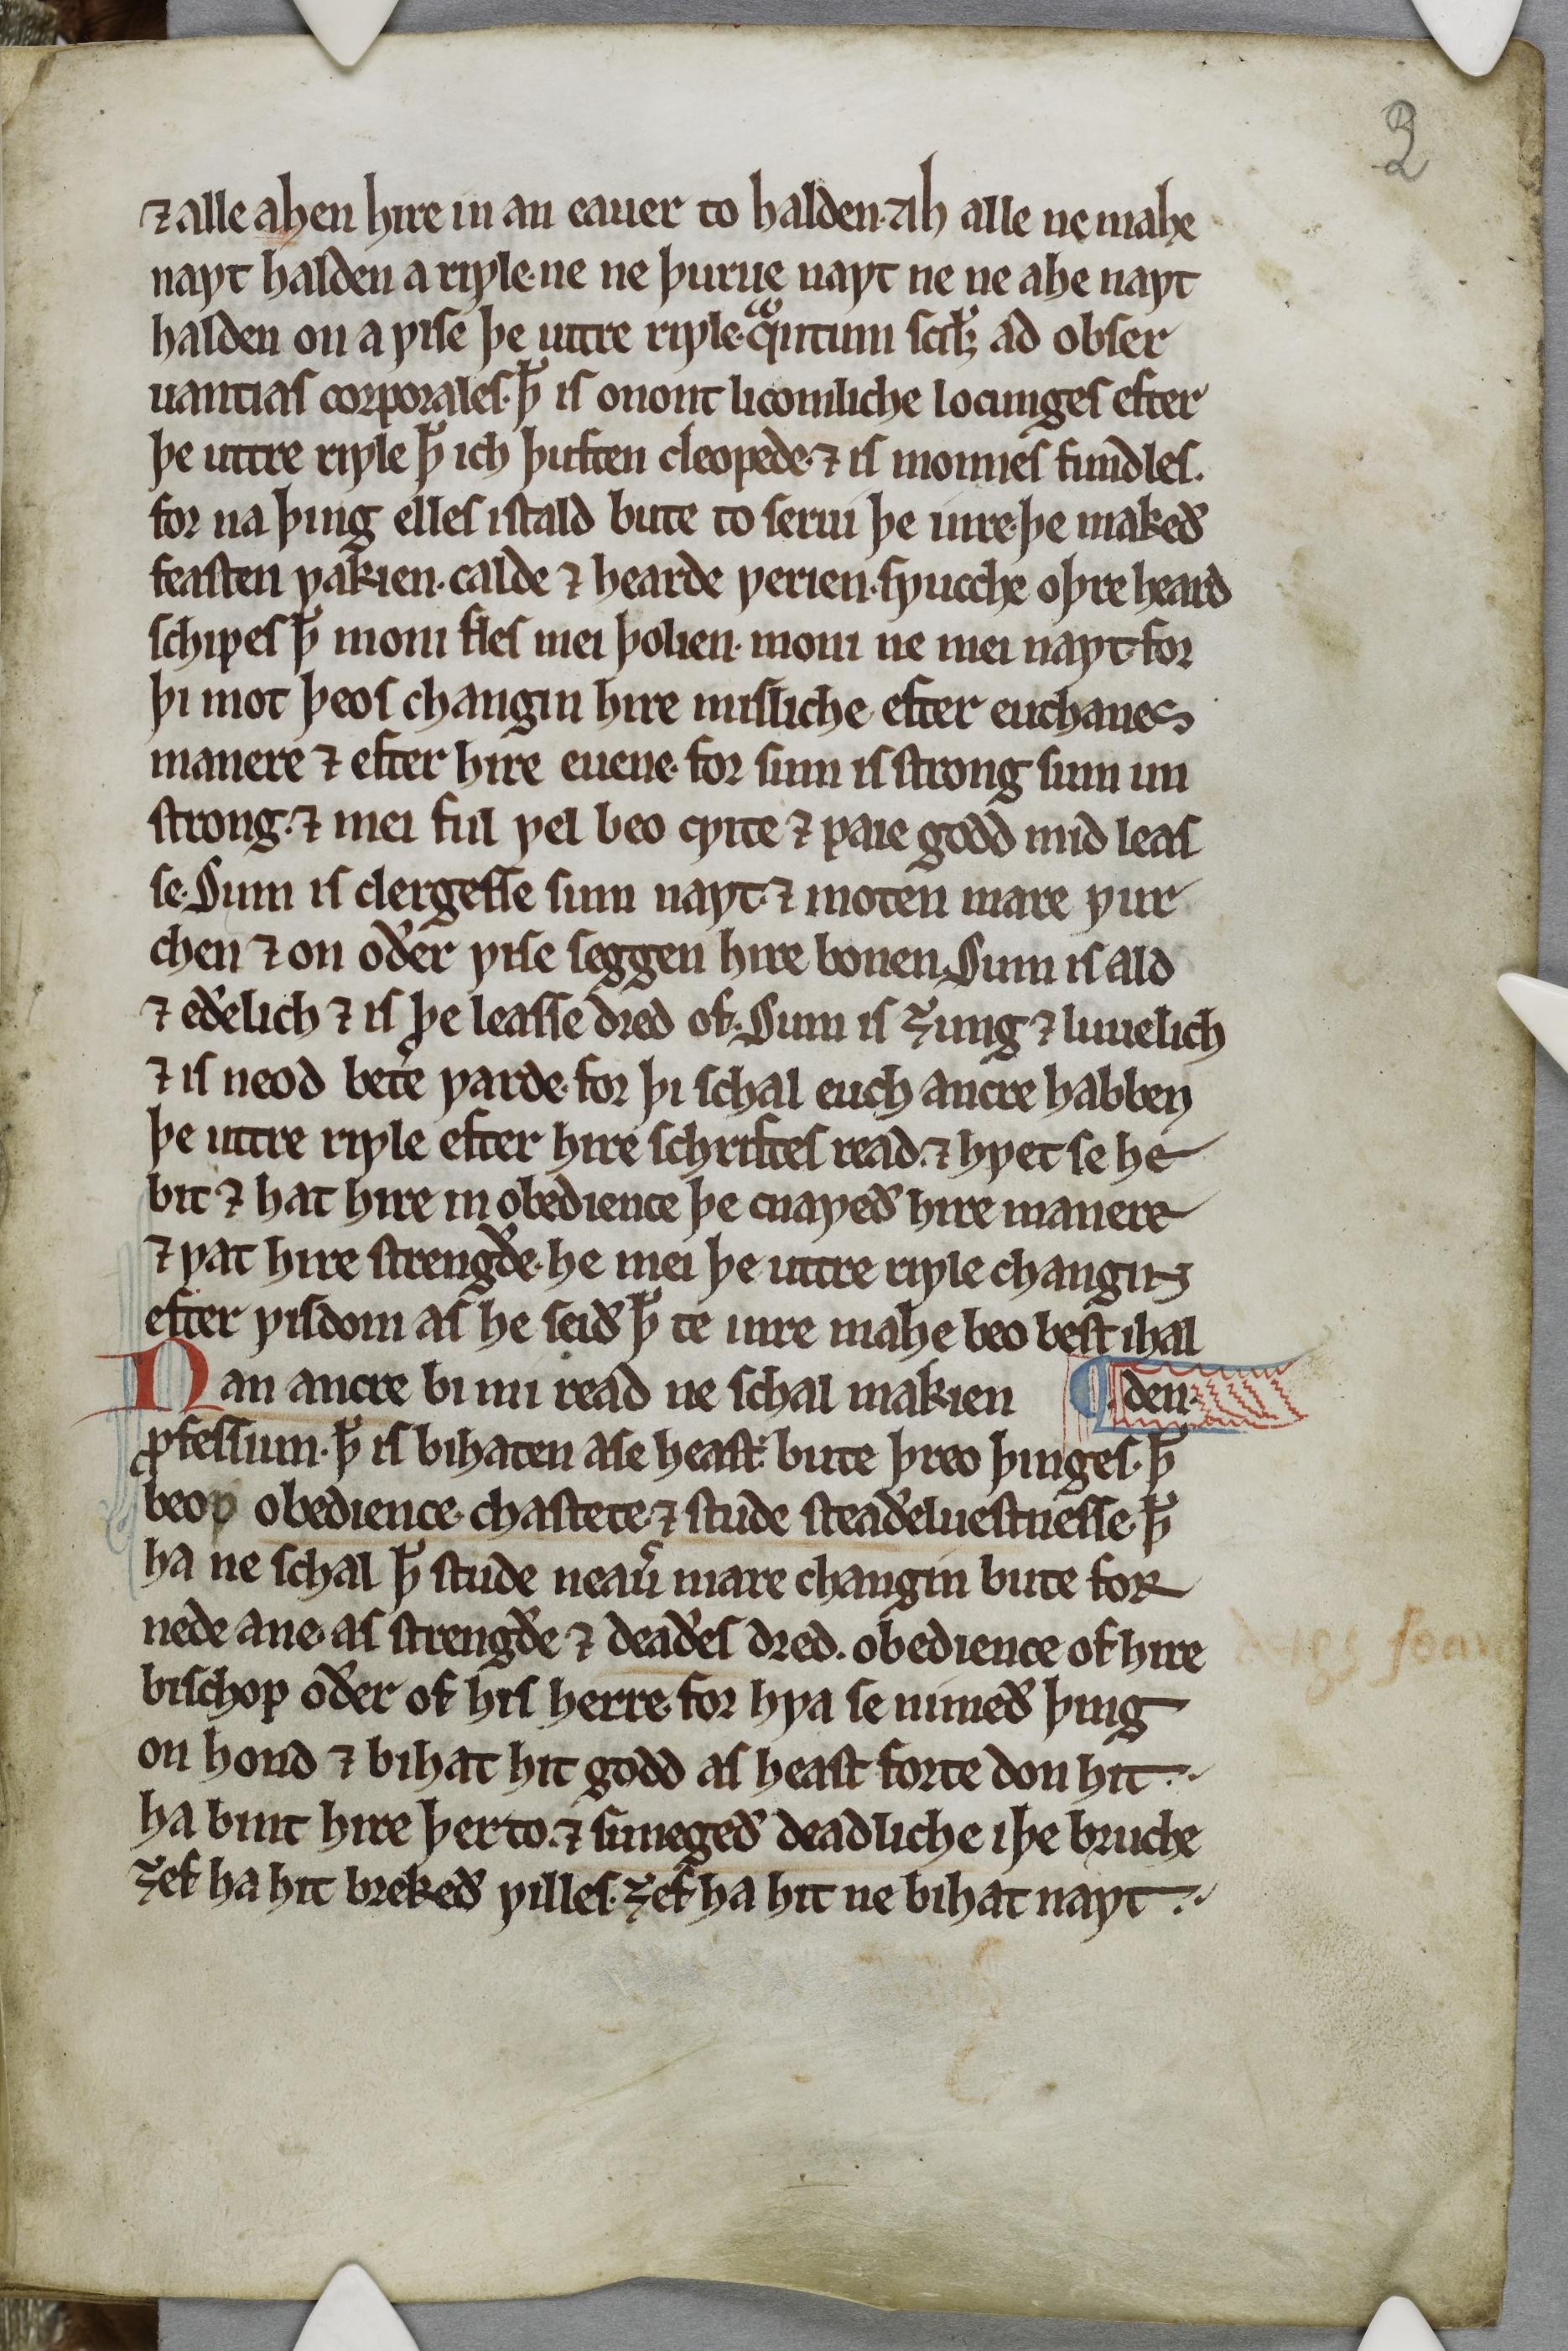 2
⁊ alle ahen hire in an eauer to halden· Ah alle ne mahe
naƿt halden a riƿle· ne ne þurue naƿt ne ne ahe naƿt
halden on a ƿise þe uttre riƿle· qͣntum scilꝫ ad obser
uantias corporales· ꝥ is onont licomliche locunges efter
þe uttre riƿle ꝥ ich þuften cleopede· ⁊ is monnes fundles·
for na þing elles istald bute to serui þe inre· þe makeð
feasten ƿakien· calde ⁊ hearde ƿerien· sƿucche oþre heard
schipes ꝥ moni fles mei þolien· moni ne mei naƿt· for
þi mot þeos changin hire misliche efter euchanes
manere ⁊ efter hire euene· for sum is strong sum un
strong· ⁊ mei ful ƿel beo cƿite ⁊ paie godd mid leas
se· Sum is clergesse sum naƿt· ⁊ moten mare ƿur
chen ⁊ on oðer ƿise seggen hire bonen· Sum is ald
⁊ eðelich ⁊ is þe leasse dred of· Sum is ȝung ⁊ luuelich
⁊ is neod bet̉e ƿarde· for þi schal euch ancre habben
þe uttre riƿle efter hire schriftes read· ⁊ hƿet se he
bit ⁊ hat hire in obedience þe cnaƿeð hire manere
⁊ ƿat hire strengðe· he mei þe uttre riƿle changin
efter ƿisdom as he seið ꝥ te inre mahe beo best ihal
Nan ancre bi mi read ne schal makien ¶ den·
ꝓfessiun· ꝥ is bihaten ase heast· bute þreo þinges· ꝥ
beoþ obedience· chastete· ⁊ stude steaðeluestnesse· ꝥ
ha ne schal ꝥ stude neaủ mare changin bute for
nede ane· as strengðe ⁊ deaðes dred· obedience of hire
bischop oðer of his herre· for hƿa se nimeð þing
on hond ⁊ bihat hit godd as heast forte don hit·
ha bint hire þerto· ⁊ sunegeð deadliche i þe bruche
ȝef ha hit brekeð ƿilles· ȝef ha hit ne bihat naƿt·